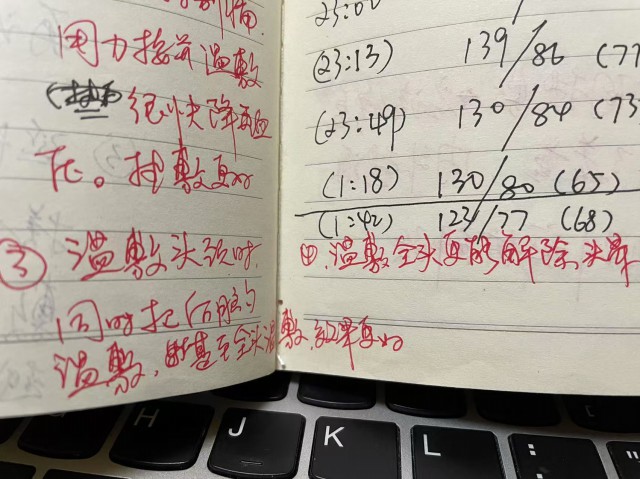 用力按并温敷
很快降再血
压。热敷更好
③ 温敷头颈时,
同时把后脑勺
温敷,甚至全头温敷,效果更好
23:00
(23:13) 139/86 (77
(23:49) 130/84 (73
(1:18) 130/80 (65)
(1:42) 123/77 (68)
④.温敷全头更能解除头晕
H
J
K
L
:
;
"